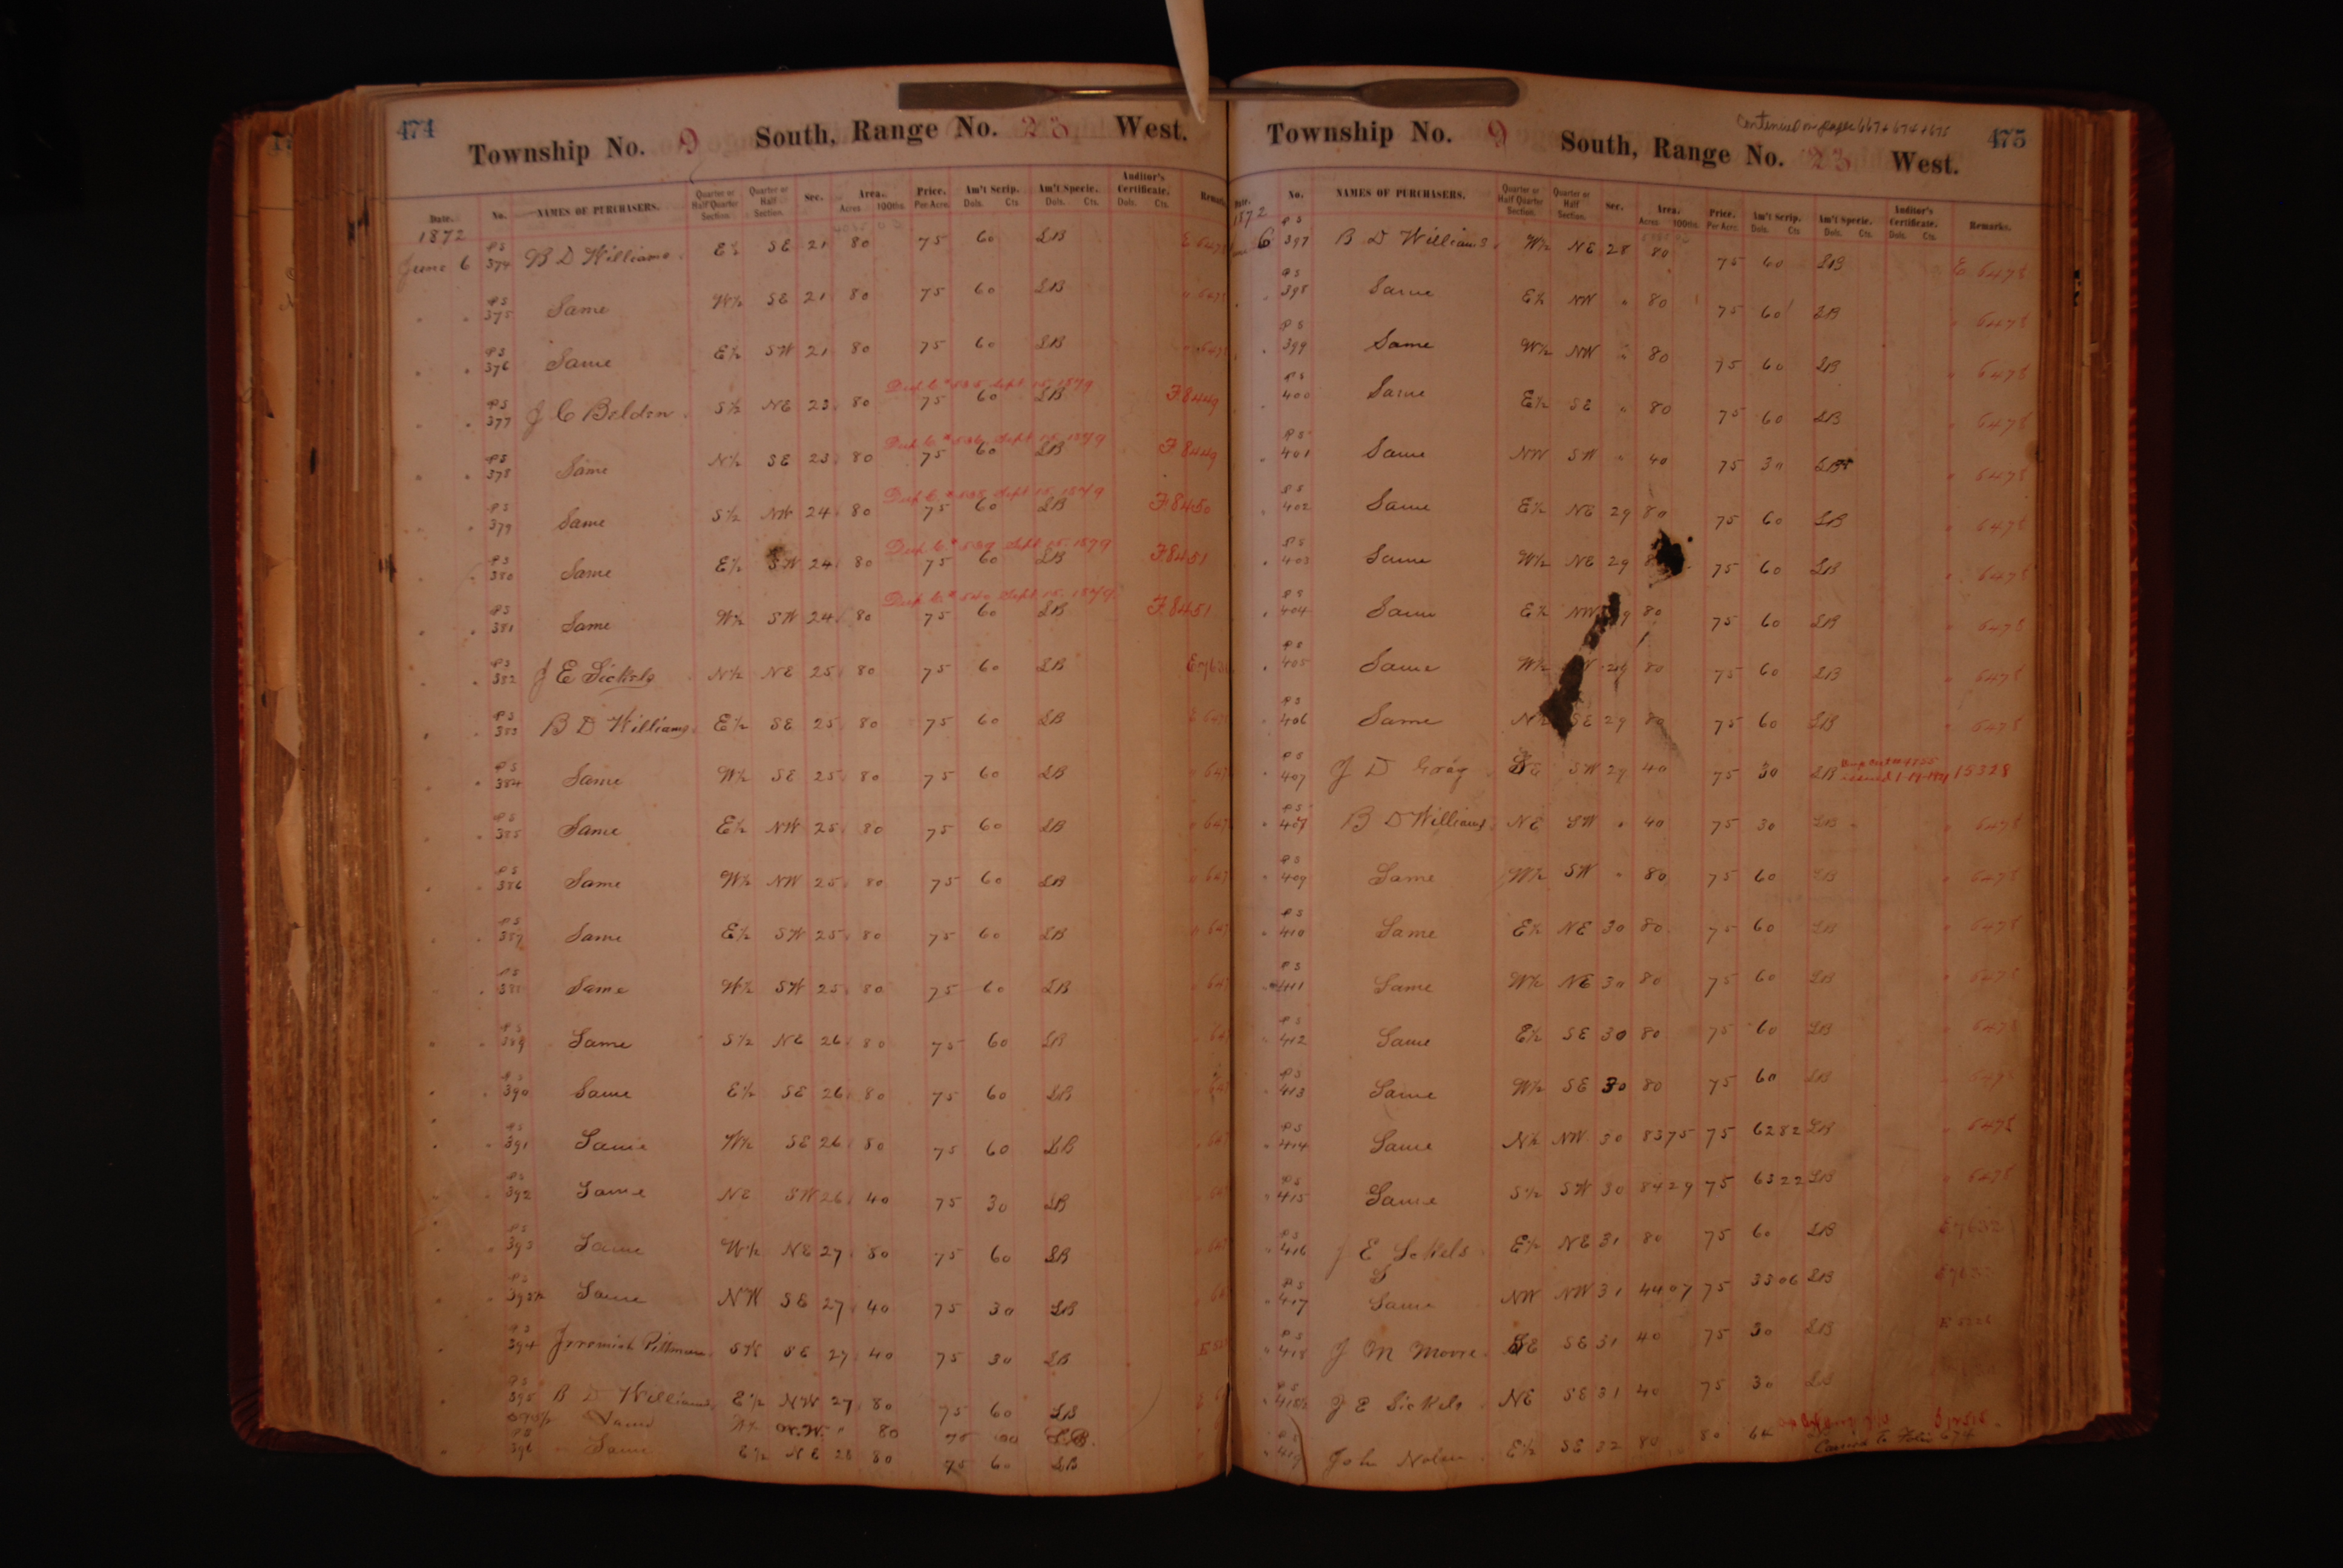 474
Township No. 9 South, Range No. 23 West.
Date. No. NAMES OF PURCHASERS. Quarter or Half Quarter Section. Quarter or Half Section. Sec. Area. Acres 100ths. Price. Per Acre. Am't Scrip. Dols. Cts. Am't Specie. Dols. Cts. Auditor's Certificate. Dols. Cts. Remarks.
1872
June 6 PS 374 B D Williams E½ SE 21 80 75 60 LB E 6478
" " PS 375 Same W½ SE 21 80 75 60 LB " 6478
" " PS 376 Same E½ SW 21 80 75 60 LB " 6478
Dup C. # 535 Sept 15, 1879
" " PS 377 J C Belden S½ NE 23 80 75 60 LB F 8449
Dup C. # 536 Sept 15, 1879
" " PS 378 Same N½ SE 23 80 75 60 LB F 8449
Dup C. # 538 Sept 15, 1879
" " PS 379 Same S½ NW 24 80 75 60 LB F 8450
Dup C. # 539 Sept 15, 1879
" " PS 380 Same E½ SW 24 80 75 60 LB F 8451
Dup C. # 540 Sept 15, 1879
" " PS 381 Same W½ SW 24 80 75 60 LB F 8451
" " PS 382 J E Sickels N½ NE 25 80 75 60 LB
" " PS 383 B D Williams E½ SE 25 80 75 60 LB
" PS 384 Same W½ SE 25 80 75 60 LB
" " PS 385 Same E½ NW 25 80 75 60 LB
" " PS 386 Same W½ NW 25 80 75 60 LB
" " PS 387 Same E½ SW 25 80 75 60 LB
" PS 388 Same W½ SW 25 80 75 60 LB
" " PS 389 Same S½ NE 26 80 75 60 LB
" " PS 390 Same E½ SE 26 80 75 60 LB
" " PS 391 Same W½ SE 26 80 75 60 LB
" " PS 392 Same NE SW 26 40 75 30 LB
" " PS 393 Same W½ NE 27 80 75 60 LB
" " PS 393½ Same NW SE 27 40 75 30 LB
" PS 394 Jeremiah Pittman SE 27 40 75 30 LB
" PS 395 B D Williams E½ NW 27 80 75 60 LB
395½ Same W½ N.W. " 80 75 60 L.B.
" PS 396 Same E½ NE 28 80 75 60 LB
Continued on page 667 & 674 & 675
475
Township No. 9 South, Range No. 23 West.
Date. No. NAMES OF PURCHASERS. Quarter or Half Quarter Section. Quarter or Half Section. Sec. Area. Acres 100ths. Price. Per Acre. Am't Scrip. Dols. Cts Am't Specie. Dols. Cts. Auditor's Certificate. Dols. Cts. Remarks.
1872
June 6 PS 397 B D Williams W½ NE 28 80 75 60 LB E 6478
" " PS 398 Same E½ NW " 80 75 60 LB " 6478
" " PS 399 Same W½ NW " 80 75 60 LB " 6478
" PS 400 Same E½ SE " 80 75 60 LB " 6478
" PS 401 Same NW SW " 40 75 30 LB " 6478
" PS 402 Same E½ NE 29 80 75 60 LB " 6478
" PS 403 Same W½ NE 29 75 60 LB " 6478
" PS 404 Same E½ NW 80 75 60 LB " 6478
" PS 405 Same W½ 29 80 75 60 LB " 6478
" PS 406 Same N½ SE 29 80 75 60 LB " 6478
" PS 407 J D Greg SE SW 29 40 75 30 LB issued 15328
" PS B D Williams NE SW " 40 75 30 LB " 6478
" PS 409 Same W½ SW " 80 75 60 LB " 6478
" PS 410 Same E½ NE 30 80 75 60 LB " 6478
" PS 411 Same W½ NE 30 80 75 60 LB " 6478
" PS 412 Same E½ SE 30 80 75 60 LB " 6478
" PS 413 Same W½ SE 30 80 75 60 LB 6478
" PS 414 Same N½ NW 30 83 75 75 62 82 LB " 6478
" PS 415 Same S½ SW 30 84 29 75 63 22 LB " 6478
" PS 416 J E Sickels E½ NE 31 80 75 60 LB E 7632
" PS 417 Same NW NW 31 44 07 75 33 06 LB
" PS 418 J M Moore SE SE 31 40 75 30 LB
" PS 418½ J E Sickels NE SE 31 40 75 30 LB
PS 419 John Nolen E½ SE 32 80 80 64
Carried to Folio 674